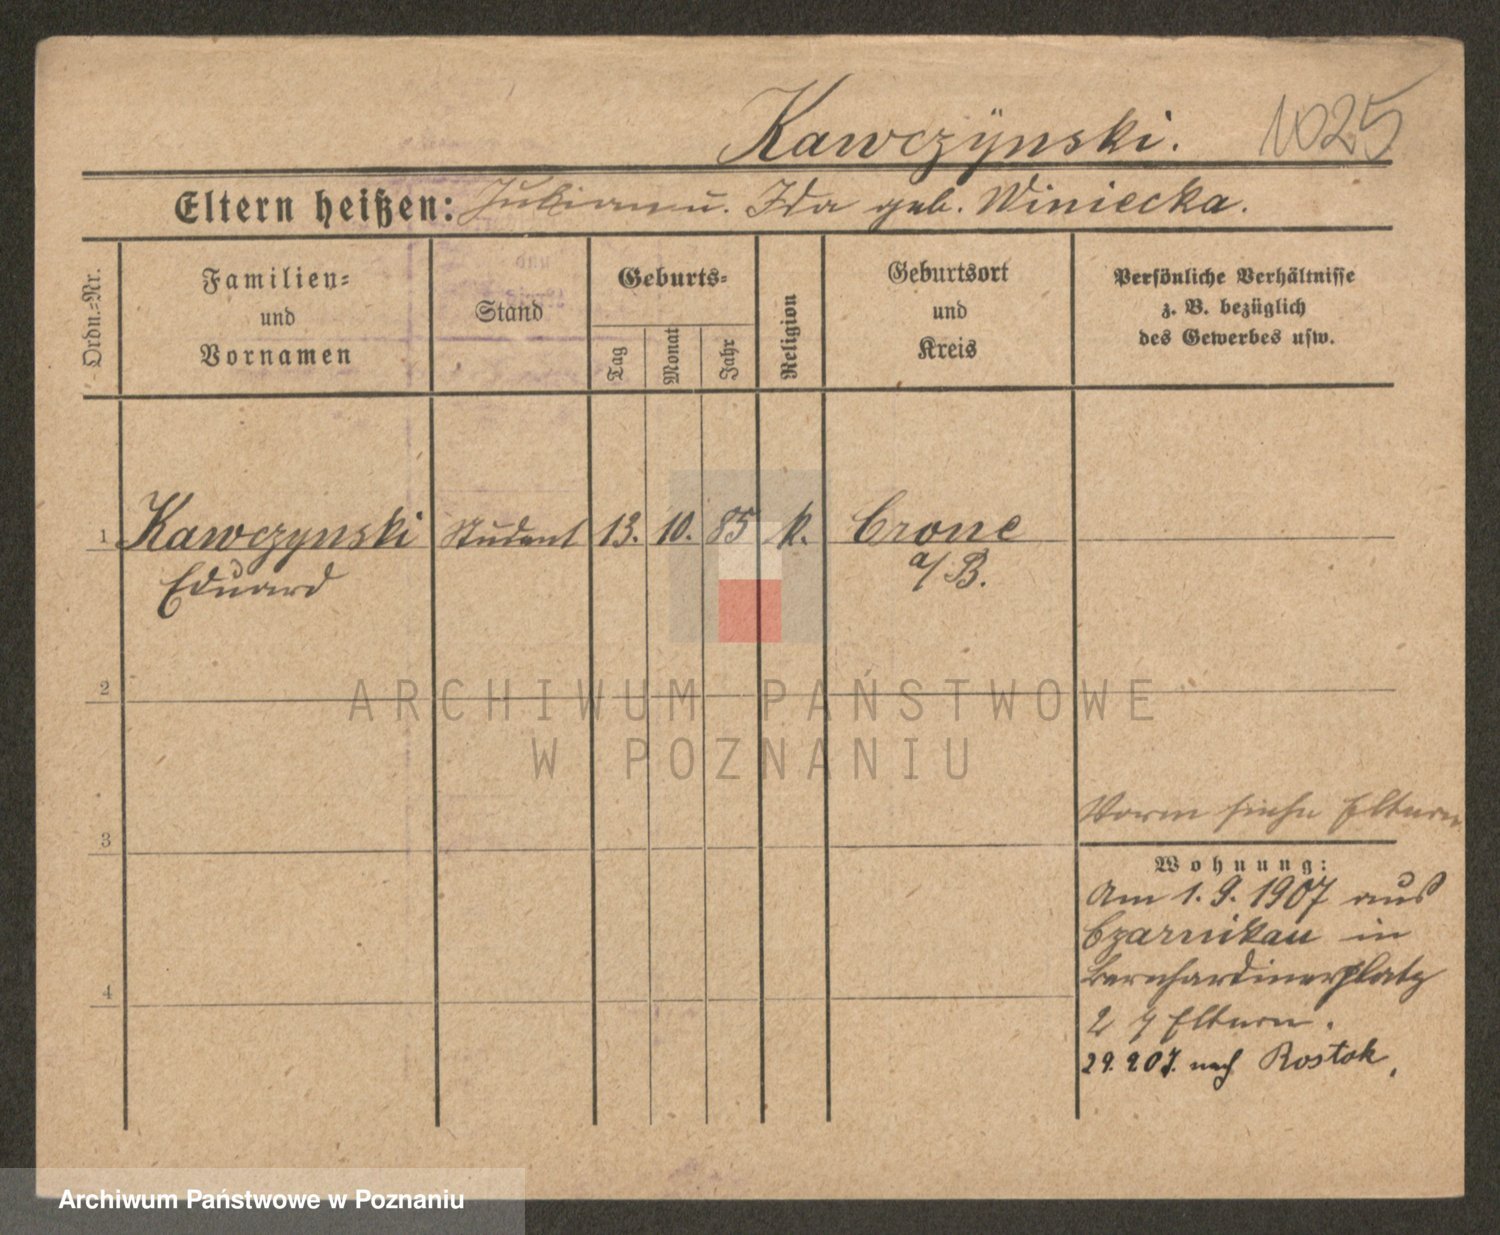 Kawczÿnski.
1025
Eltern heißen: Julian u. Ida geb. Winiecka.
Ordn.-Nr.
Familien-
und
Vornamen
Stand
Geburts-
Tag
Monat
Jahr
Religion
Geburtsort
und
Kreis
Persönliche Verhältnisse
z. B. bezüglich
des Gewerbes usw.
1 Kawczynski Student 13. 10. 85 k. Crone
Eduard a/B.
2
ARCHIWUM PAŃSTWOWE
W POZNANIU
Vorm siehe Eltern
3
Wohnung:
Am 1.9.1907 aus
Czarnikau in
Bernhardinerplatz
4
2 Eltern.
29.907. nach Rostok.
Archiwum Państwowe w Poznaniu